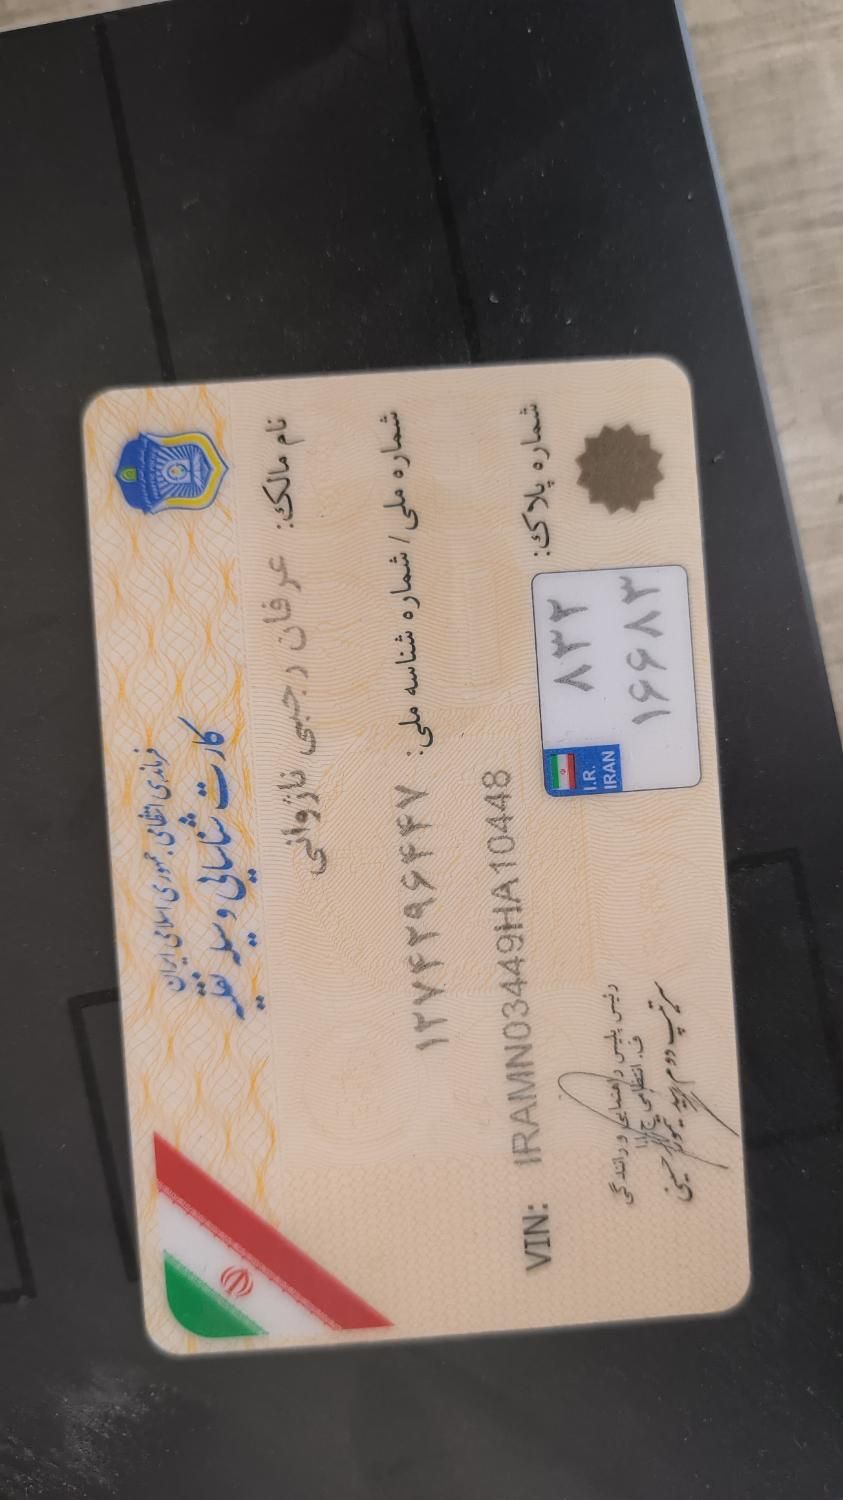 فرماندهی انتظامی جمهوری اسلامی ایران
کارت شناسایی وسیله نقلیه
نام مالک: عرفان رجبی نازوانی
شماره ملی / شماره شناسه ملی: ۱۲۷۴۲۹۶۴۴۷
VIN: IRAMN03449HA10448
شماره پلاک:
۸۳۲
۱۶۶۸۳
I.R.
IRAN
رئیس پلیس راهنمایی و رانندگی
ف. انتظامی ج.ا.ا
سرتیپ دوم سید تیمور حسینی